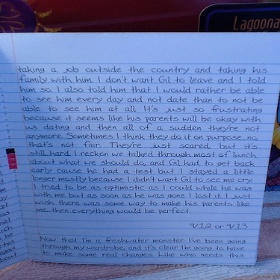 Lagoona
taking a job outside the country and taking his
family with him. I don't want Gil to leave and I told
him so. I also told him that I would rather be able
to see him every day and not date than to not be
able to see him at all. It's just so frustrating
because it seems like his parents will be okay with
us dating and then all of a sudden they're not
anymore. Sometimes I think they do it on purpose, so
that's not fair. They're just scared but it's
still hard. I reckon we talked through most of lunch
about what we should do, and Gil had to get back
early cause he had a test but I stayed a little
longer mostly because I didn't want Gil to see me cry.
I tried to be as optimistic as I could while he was
with me but as soon as he was gone I lost it. I just
wish there was some way to make his parents like
me, then everything would be perfect.
V.1.2 or V.1.3
Now that I'm a freshwater monster I've been going
through my wardrobe and it's clear I'm going to have
to make some real changes. Like who needs this